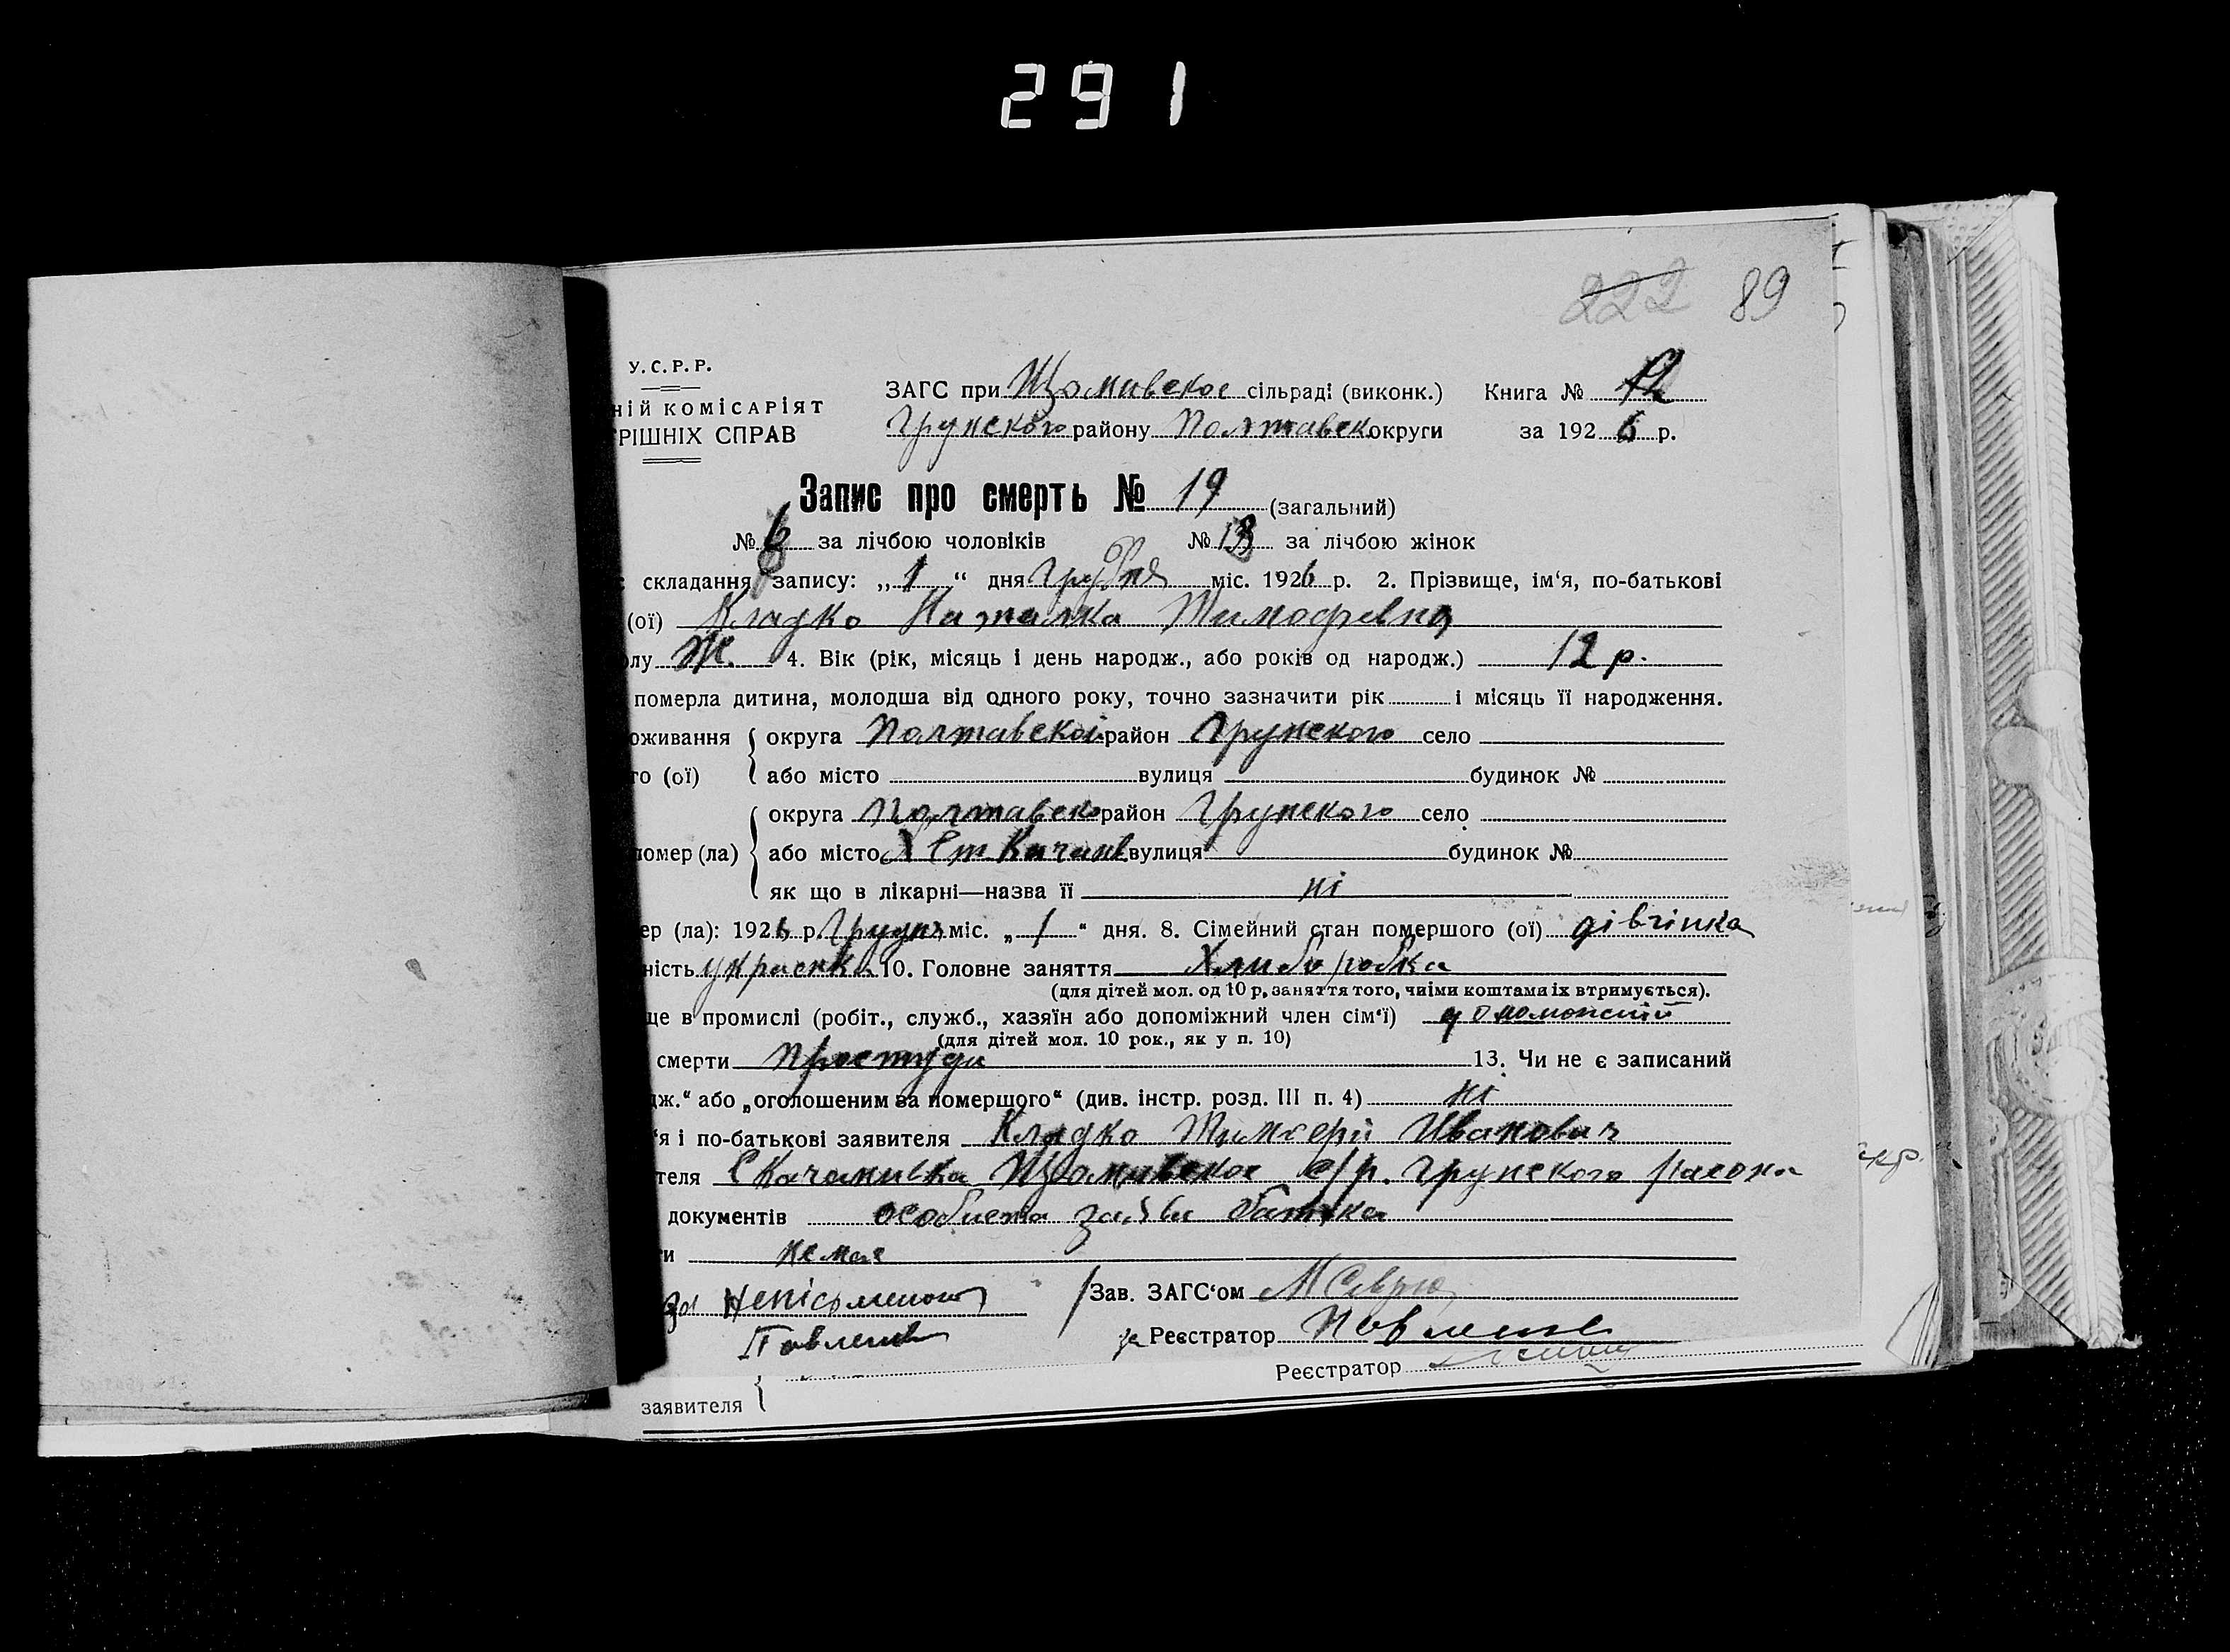 291
222 89
У.С.Р.Р.
ЗАГС при Щомивское сільраді (виконк.) Книга № 12
НІЙ КОМІСАРІЯТ
Грунского району Полтавск округи за 1926 р.
РІШНІХ СПРАВ
Запис про смерть № 19 (загальний)
№ 6 за лічбою чоловіків № 13 за лічбою жінок
складання запису: „1“ дня Грудня міс. 1926 р. 2. Прізвище, ім‘я, по-батькові
(ої) Кладко Наталка Тимофевна
лу Ж. 4. Вік (рік, місяць і день народж., або років од народж.) 12 р.
померла дитина, молодша від одного року, точно зазначити рік і місяць її народження.
оживання округа Полтавской район Грунского село
го (ої) або місто вулиця будинок №
округа Полтавско район Грунского село
помер (ла) або місто Качанив вулиця будинок №
як що в лікарні—назва її ні
ер (ла): 1926 р. Грудня міс. „1“ дня. 8. Сімейний стан помершого (ої) дівчінка
ність украенка 10. Головне заняття Хлиборобка
(для дітей мол. од 10 р, заняття того, чиїми коштами їх втримується).
ще в промислі (робіт., служб., хазяїн або допоміжний член сім‘ї)
(для дітей мол. 10 рок., як у п. 10)
смерти простуда 13. Чи не є записаний
дж.“ або „оголошеним за помершого“ (див. інстр. розд. III п. 4) ні
‘я і по-батькові заявителя Кладко Тимофей Иванович
теля С Качанивка Щомивское с/р. Грунского раеона
документів особиста заява батька
и немае
за непісьменого Зав. ЗАГС‘ом
Павленко за Реєстратор Павленко
Реєстратор
заявителя